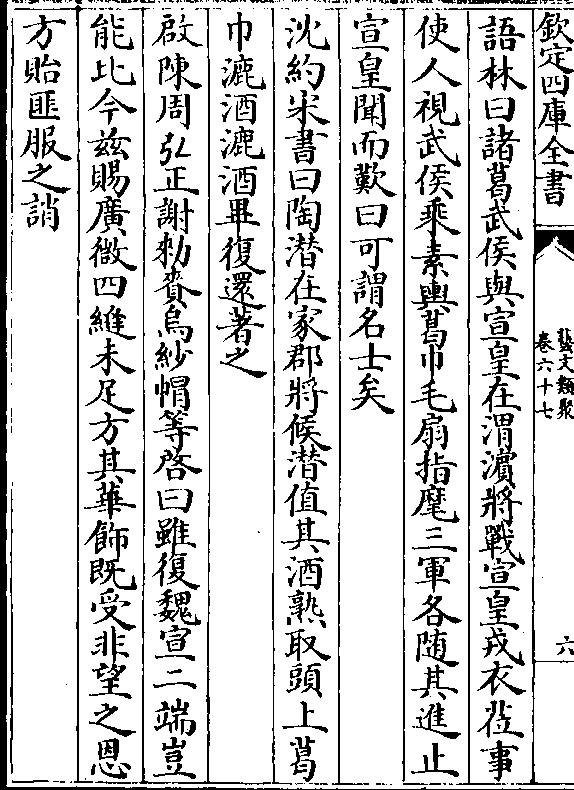 欽定四庫全書
藝文類聚
卷六十七
六
語林曰諸葛武侯與宣皇在渭濵將戰宣皇戎衣莅事
使人視武侯乘素輿葛巾毛扇指麾三軍各随其進止
宣皇聞而歎曰可謂名士矣
沈約宋書曰陶潛在家郡將候潛值其酒熟取頭上葛
巾漉酒漉酒畢復還著之
啟陳周弘正謝勑賚烏紗帽等啓曰雖復魏宣二端豈
能比今兹賜廣微四維未足方其華飾既受非望之恩
方貽匪服之誚